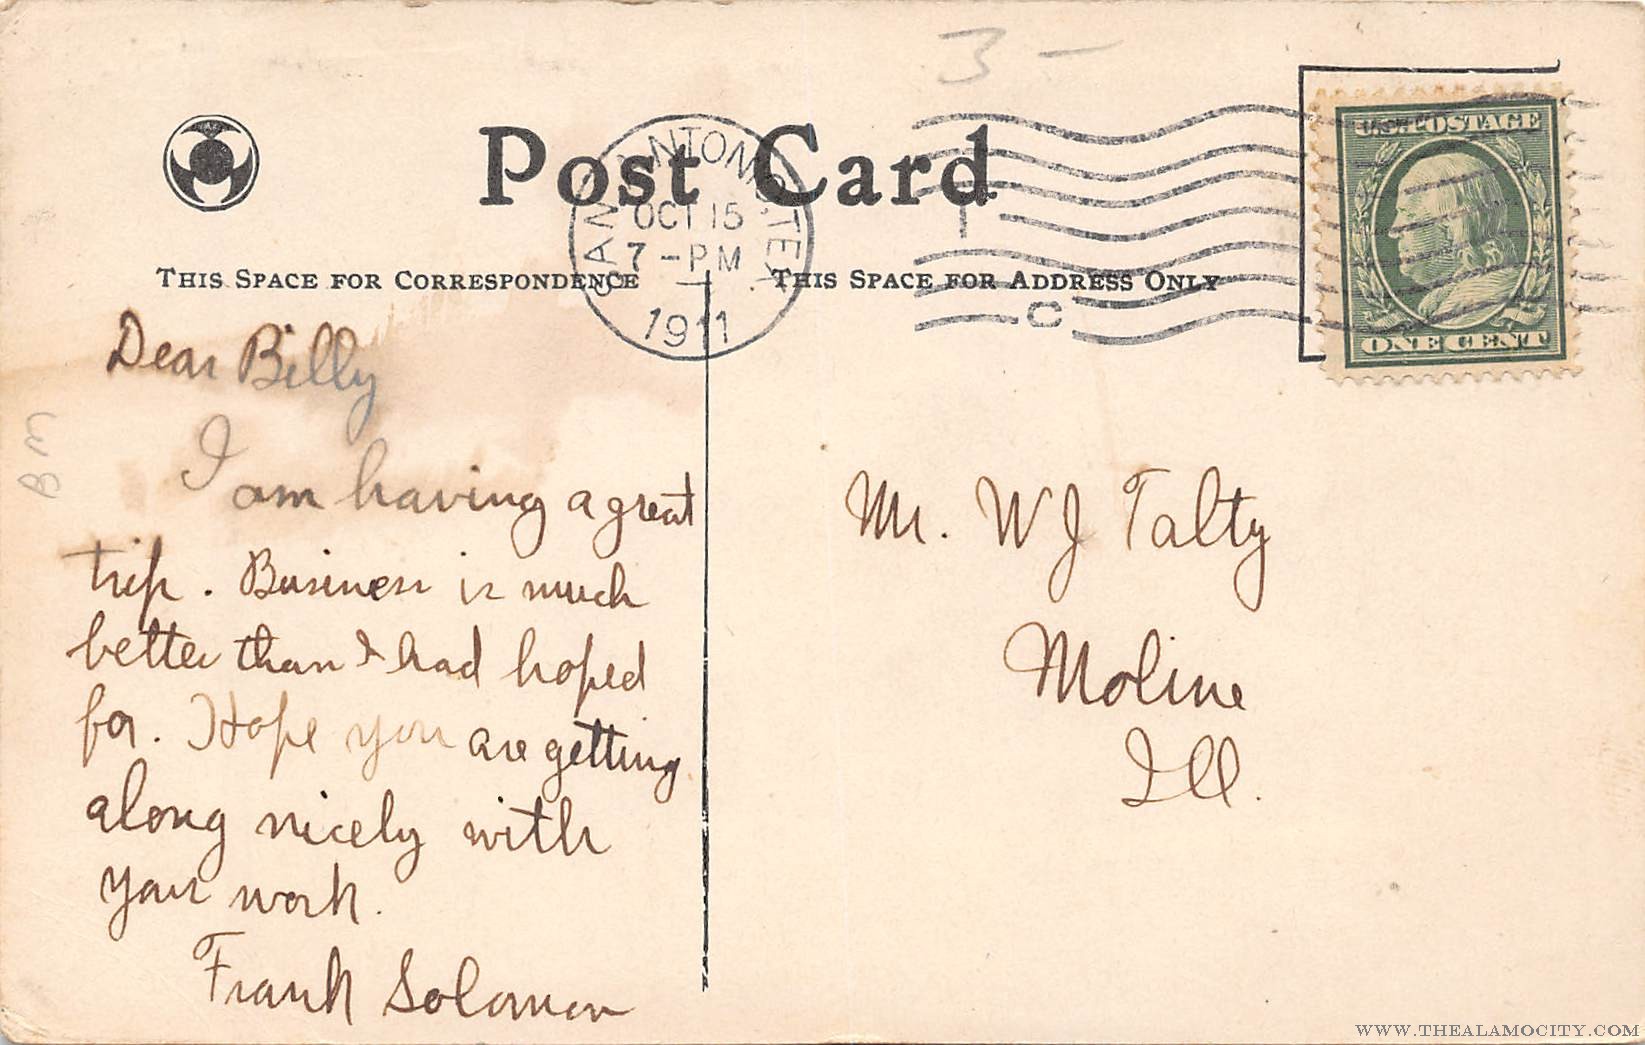 3 -
Post Card
SAN ANTONIO, TEX.
OCT 15
7-PM
1911
U.S. POSTAGE
ONE CENT
C
THIS SPACE FOR CORRESPONDENCE
THIS SPACE FOR ADDRESS ONLY
Dear Billy
I am having a great
trip. Business is much
better than I had hoped
for. Hope you are getting
along nicely with
your work.
Frank Solomon
Mr. W J Talty
Moline
Ill.
BM
WWW.THEALAMOCITY.COM